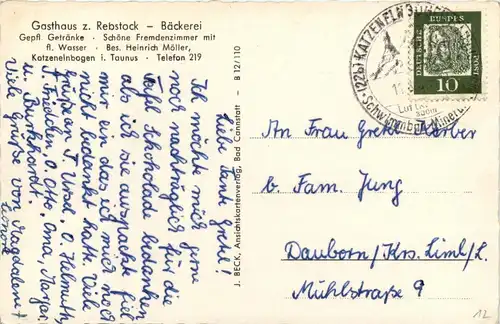 Gasthaus z. Rebstock – Bäckerei
Gepfl. Getränke · Schöne Fremdenzimmer mit
fl. Wasser · Bes. Heinrich Möller,
Katzenelnbogen i. Taunus · Telefon 219
Liebe Tante Gretel!
Ich möchte mich gerne
noch nachträglich für die
Tafel Schokolade bedanken
als ich sie auspackte fiel
mir ein das ich mich noch
nicht bedankt hatte. Viele
Grüße an T. Ursel, O. Helmuth,
T. Friedchen, O. Otto, Oma,
u. Burkhardt.
Viele Grüße von
J. BECK, Ansichtskartenverlag, Bad Cannstatt – B 12/110
(22b) KATZENELNBOGEN
DEUTSCHE BUNDESPOST
10
An Frau Gretel Körber
b. Fam. Jung
Dauborn/Krs. Limb/L.
Mühlstraße 9
12